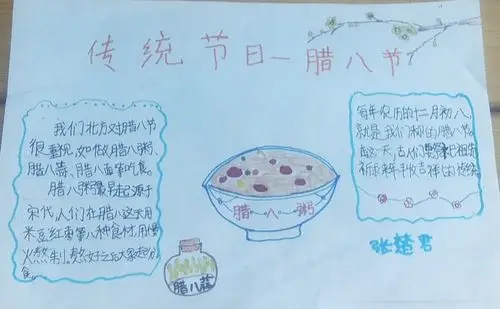 传统节日一腊八节
我们北方对腊八节
很重视,如做腊八粥、
腊八蒜、腊八面等吃食。
腊八粥最早起源于
宋代,人们在腊八这天用
米豆红枣等八种食材,用慢
火熬制,熬好之后大家起分
食。
每年农历的十二月初八,
就是我们的腊八节。
这一天,古人们要祭祀祖先
祈求丰收吉祥的传统
腊八粥
腊八蒜
张楚君